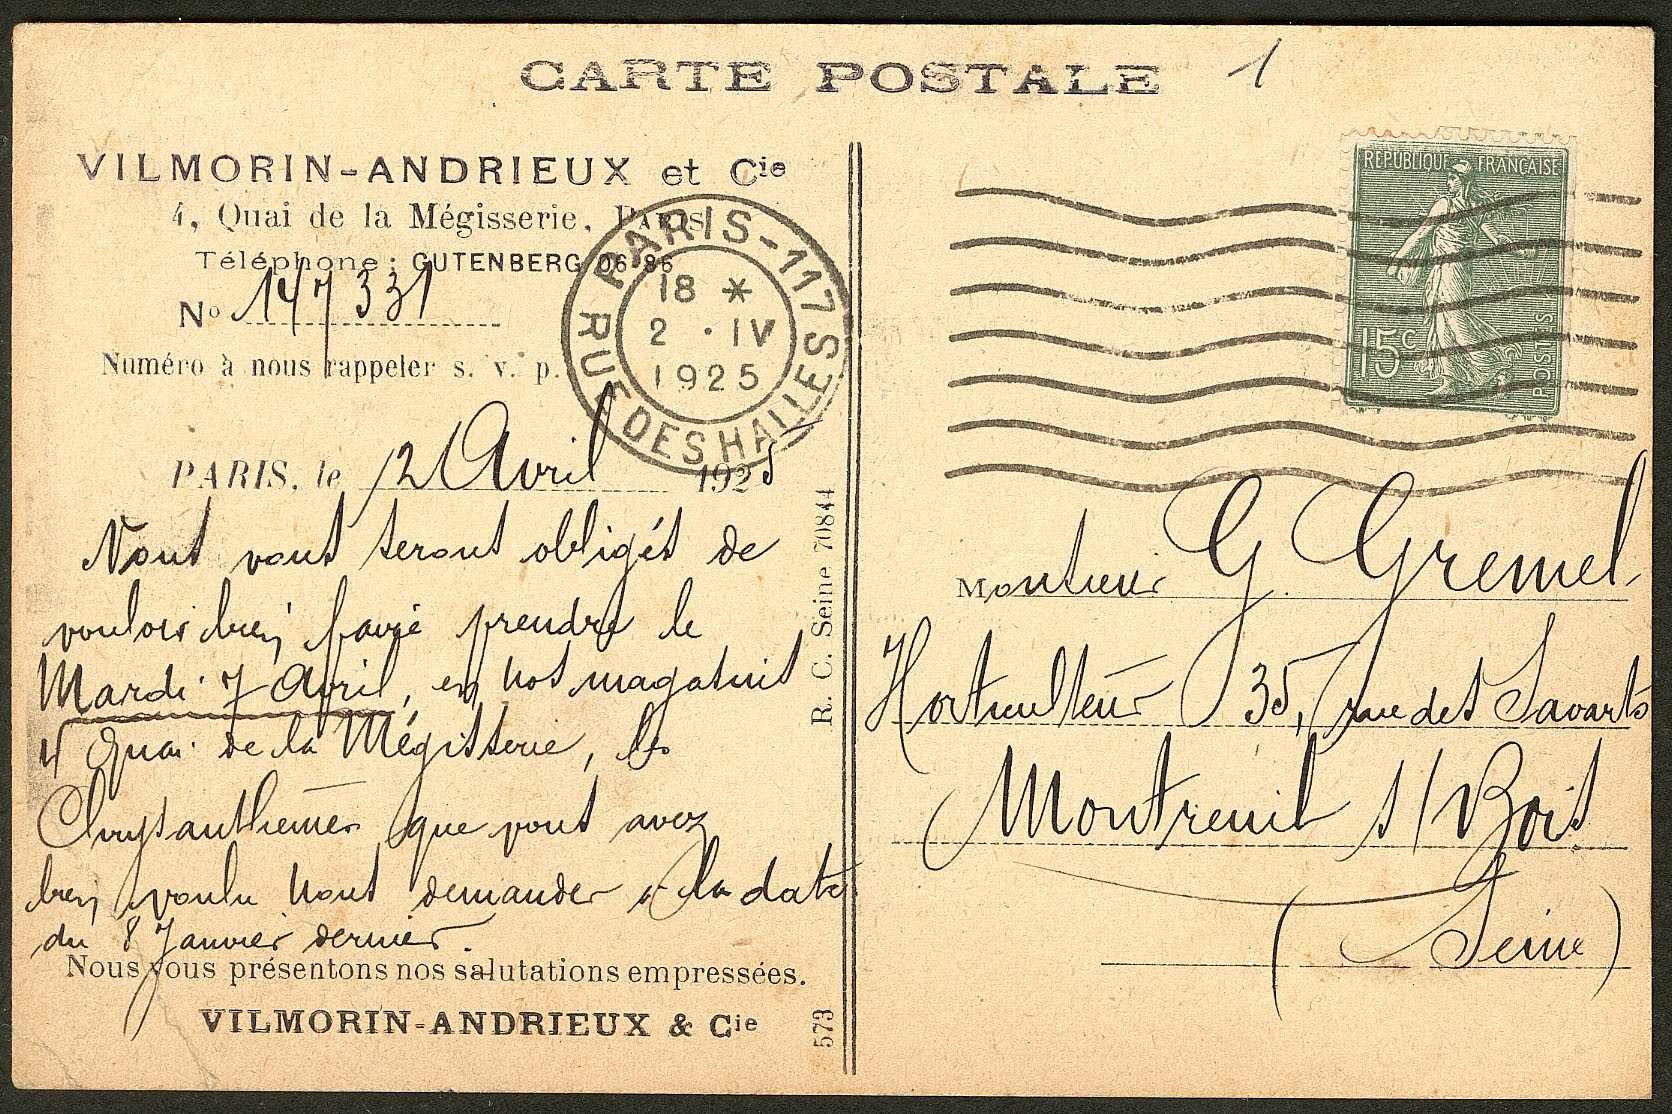 CARTE POSTALE
1
VILMORIN-ANDRIEUX et Cie
4, Quai de la Mégisserie, PARIS
Téléphone : GUTENBERG 06-86
No 147331
Numéro à nous rappeler s. v. p.
PARIS, le 2 Avril 1925
Nous vous serons obligés de
vouloir bien faire prendre le
Mardi 7 Avril, en nos magasins
4 Quai de la Mégisserie, les
Chrysanthèmes que vous avez
bien voulu nous demander à la date
du 8 Janvier dernier.
Nous vous présentons nos salutations empressées.
VILMORIN-ANDRIEUX & Cie
R. C. Seine 70844
573
PARIS-117
18 *
2 · IV
1925
RUE DES HALLES
REPUBLIQUE FRANÇAISE
15c
POSTES
Monsieur G. Gremel
Horticulteur 35, rue des Savarts
Montreuil s/ Bois
(Seine)